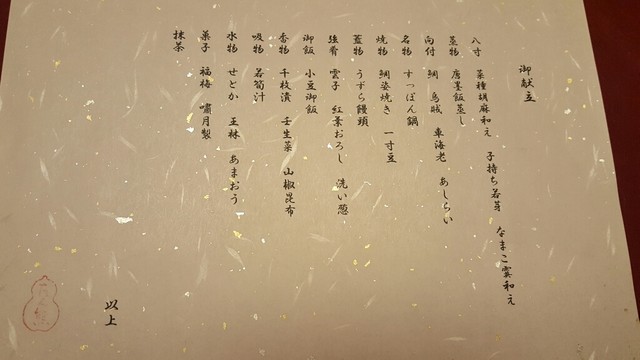 御献立
八寸　菜種胡麻和え　子持ち若芽　なまこ霙和え
蒸物　唐墨飯蒸し
向付　鯛　烏賊　車海老　あしらい
名物　すっぽん鍋
焼物　鯛姿焼き　一寸豆
蓋物　うずら饅頭
強肴　雲子　紅葉おろし　洗い葱
御飯　小豆御飯
香物　千枚漬　壬生菜　山椒昆布
吸物　若筍汁
水物　せとか　王林　あまおう
菓子　福梅　嘯月製
抹茶
以上